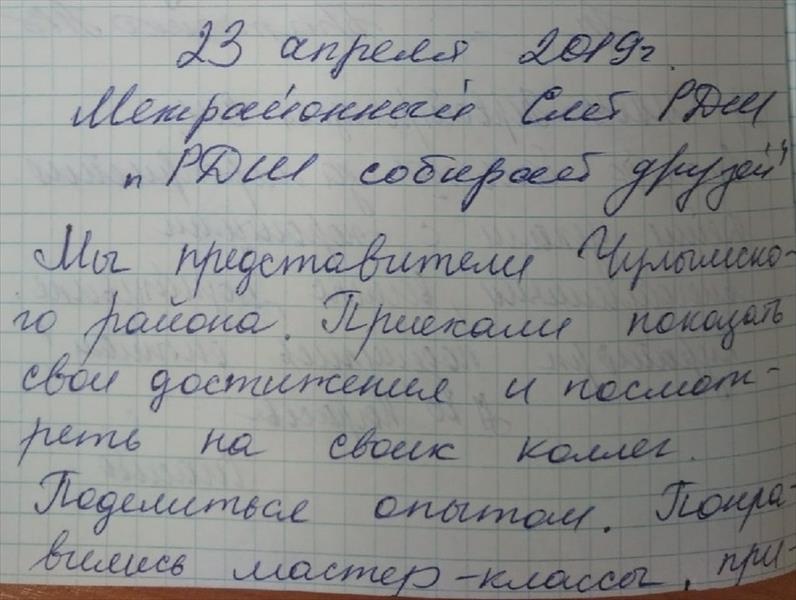 23 апреля 2019г.
Межрайонный Слёт РДШ
"РДШ собирает друзей"
Мы представители Чулымско-
го района. Приехали показать
свои достижения и посмот-
реть на своих коллег.
Поделиться опытом. Понра-
вились мастер-классы, при-